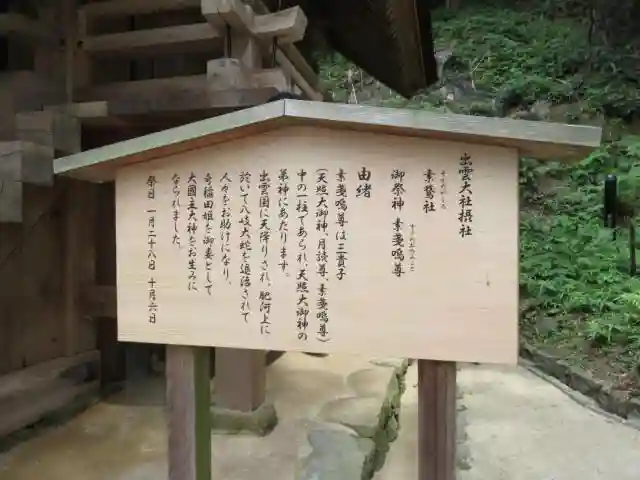 出雲大社摂社
素鵞社
そがのやしろ
御祭神 素戔嗚尊
すさのおのみこと
由緒
素戔嗚尊は三貴子
(天照大御神、月読尊、素戔嗚尊)
中の一柱であられ、天照大御神の
弟神にあたります。
出雲国に天降りされ、肥河上に
於いて八岐大蛇を退治されて
人々をお助けになり、
奇稲田姫を御妻として
大国主大神をお生みに
なられました。
祭日 一月二十八日 十月六日